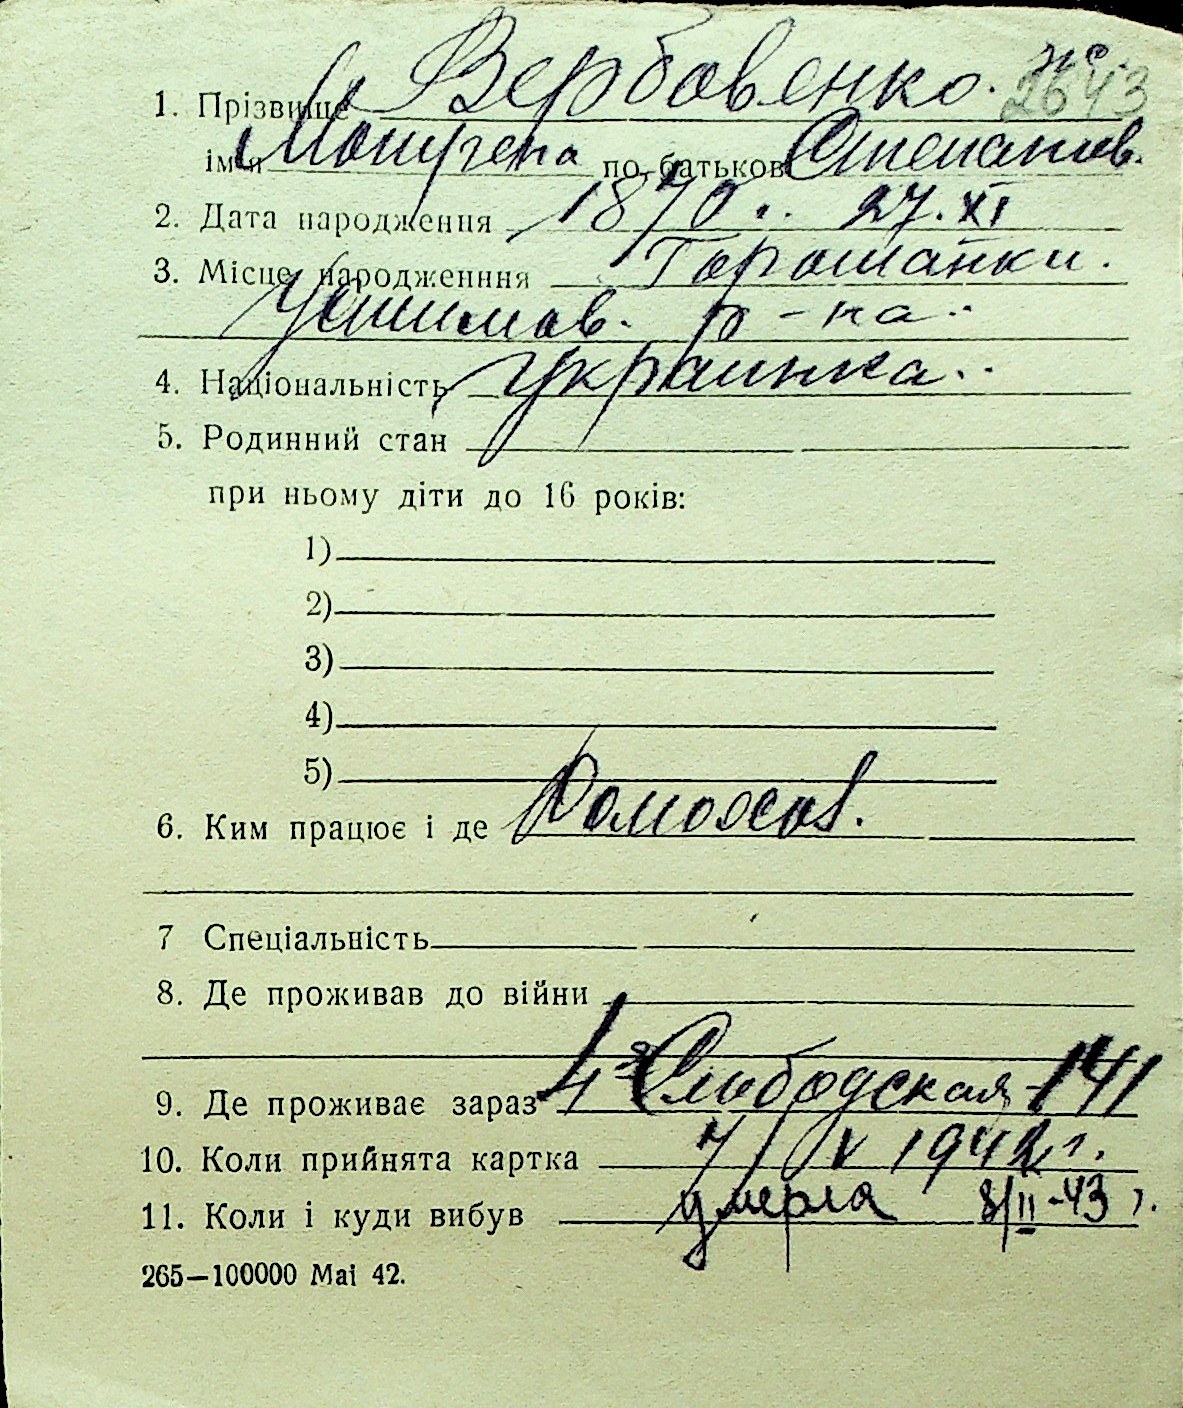 1. Прізвище Вербовенко. 2643
ім'я Мотрена по батькові Степанов.
2. Дата народження 1870 г. 27.XI
3. Місце народженння Горошанки.
р-на.
4. Національність украинка..
5. Родинний стан
при ньому діти до 16 років:
1)
2)
3)
4)
5)
6. Ким працює і де Домохоз.
7 Спеціальність
8. Де проживав до війни
9. Де проживає зараз 4-я Слободская-141
10. Коли прийнята картка 7/IV 1942 г.
11. Коли і куди вибув умерла 8/II-43 г.
265—100000 Mai 42.